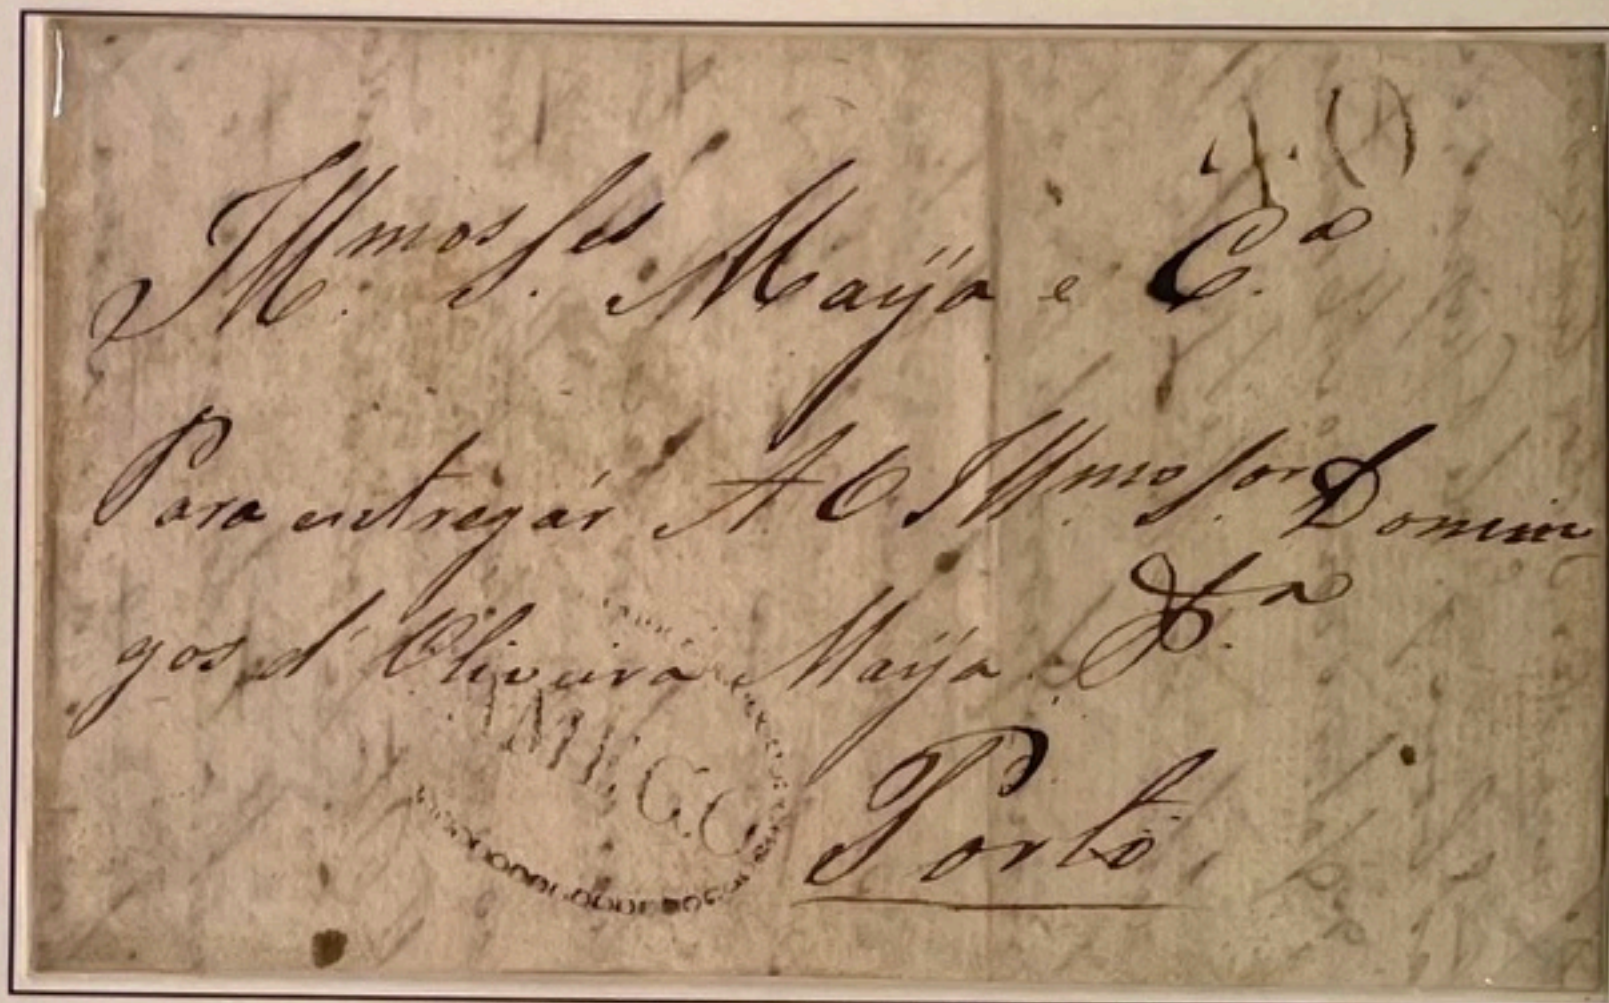 Ill.mos S.res Maÿa e C.a
Para entregár AO Ill.mo S.or Domin
gos d' Oliveira Maÿa
Porto